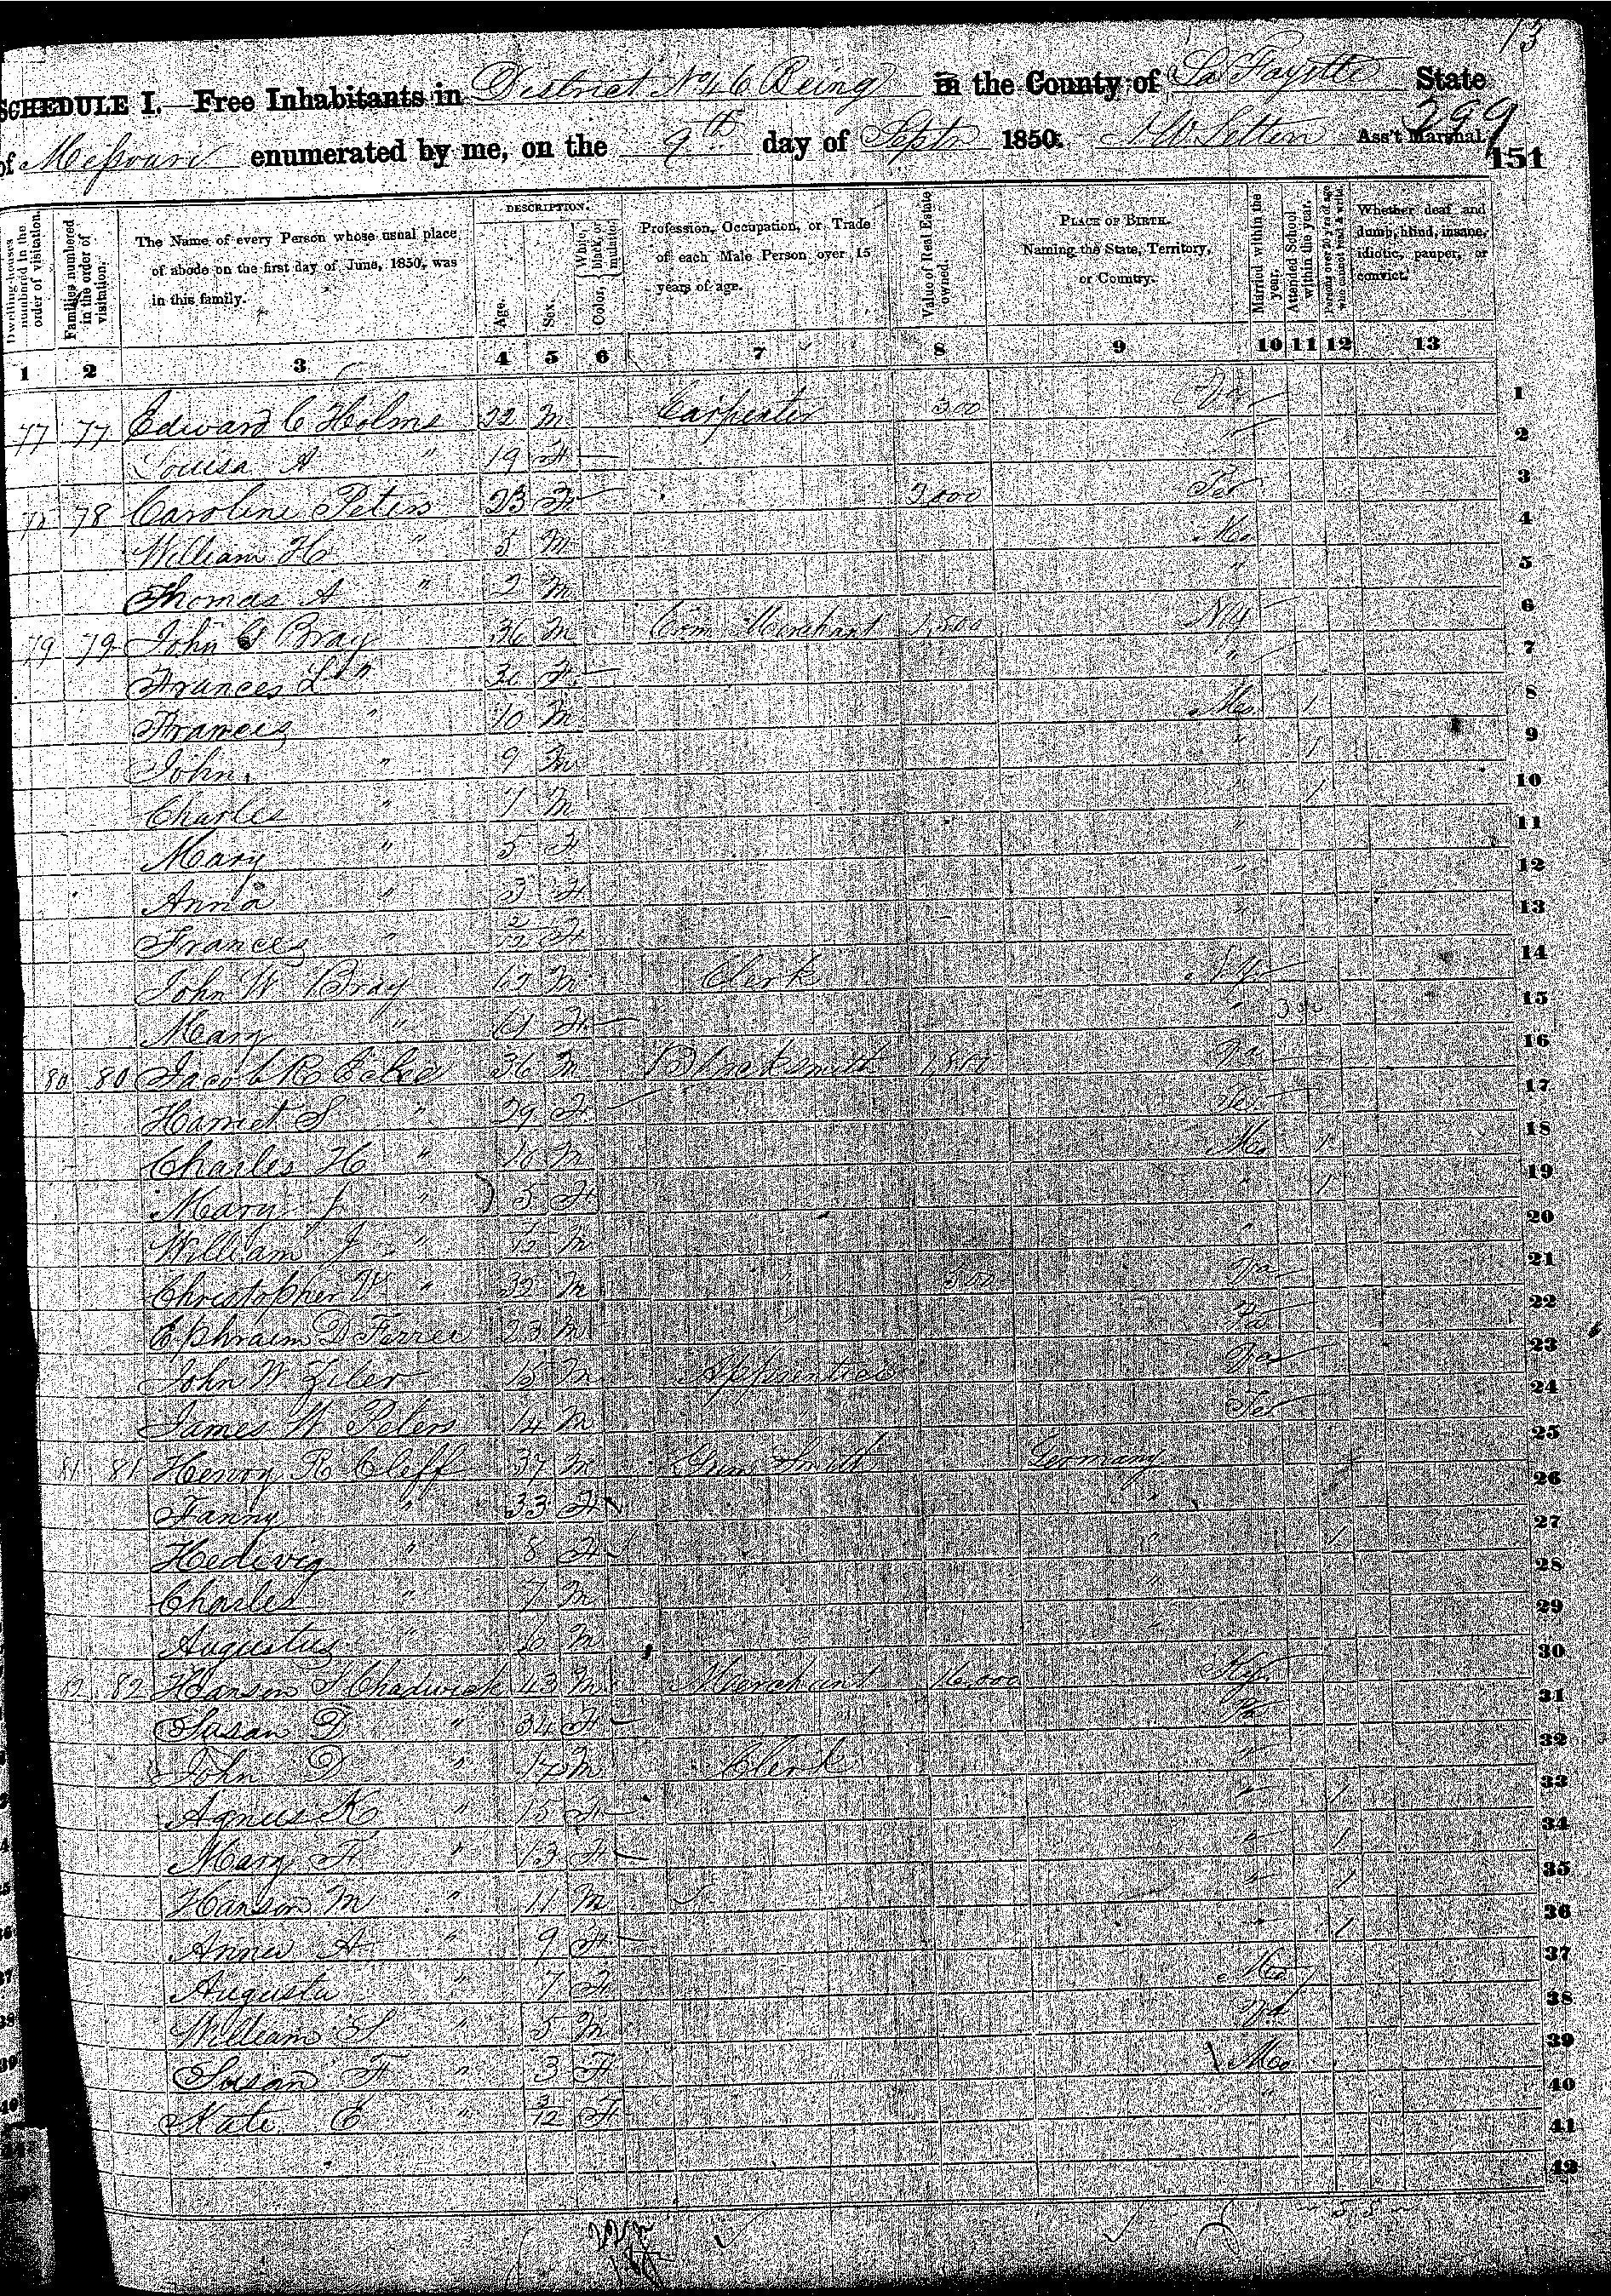 13
SCHEDULE I. Free Inhabitants in District No 46 Being in the County of La Fayette State
of Missouri enumerated by me, on the 9th day of Septr 1850. Ass't Marshal.
299
151
Dwelling-houses numbered in the order of visitation.
Families numbered in the order of visitation.
The Name of every Person whose usual place of abode on the first day of June, 1850, was in this family.
DESCRIPTION.
Age.
Sex.
Color, White, black, or mulatto.
Profession, Occupation, or Trade of each Male Person over 15 years of age.
Value of Real Estate owned.
PLACE OF BIRTH. Naming the State, Territory, or Country.
Married within the year.
Attended School within the year.
Persons over 20 y'rs of age who cannot read & write.
Whether deaf and dumb, blind, insane, idiotic, pauper, or convict.
1 2 3 4 5 6 7 8 9 10 11 12 13
77 77 Edward C Holms 22 M Carpenter 300 Va 1
Louisa A " 19 F " 2
78 Caroline Peters 23 F 2,000 3
William H " 5 M Mo 4
Thomas A " 2 M " 5
79 79 John Bray 36 M Com Merchant NY 6
Frances L " F " 7
Francis " 10 M Mo 1 8
John " 9 M " 1 9
Charles " 7 M " 1 10
Mary " 5 F " 11
Anna " 3 F " 12
Frances " 2/12 F " 13
John W Bray M Clerk N.Y. 14
Mary " 61 F " 15
80 80 Jacob R 36 M Blacksmith 1,800 Va 16
Harriet S " 29 F 17
Charles H " 10 M Mo 1 18
Mary " 5 F " 1 19
William J " M " 20
Christopher V " 32 M 500 Va 21
Ephraim D 23 M 22
John W Ziler 15 M Apprentice Va 23
James W Peters 14 M 24
81 81 Henry R Cleff 37 M Gun Smith Germany 25
Fanny " 33 F " 26
Hedivig " 8 F " 1 27
Charles " 7 M " 28
Augustus " 6 M " 29
82 82 Hanson F Chadwick 43 M Merchant 16,000 Ky 30
Susan D " 34 F Va 31
John D " 17 M Clerk " 32
Agnus K " 15 F " 1 33
Mary F " 13 F " 1 34
Hanson M " 11 M " 1 35
Anna A " 9 F " 1 36
Augusta " 7 F Mo 37
William S " 5 M 38
Susan F " 3 F Mo 39
Kate E " 3/12 F " 40
41
42